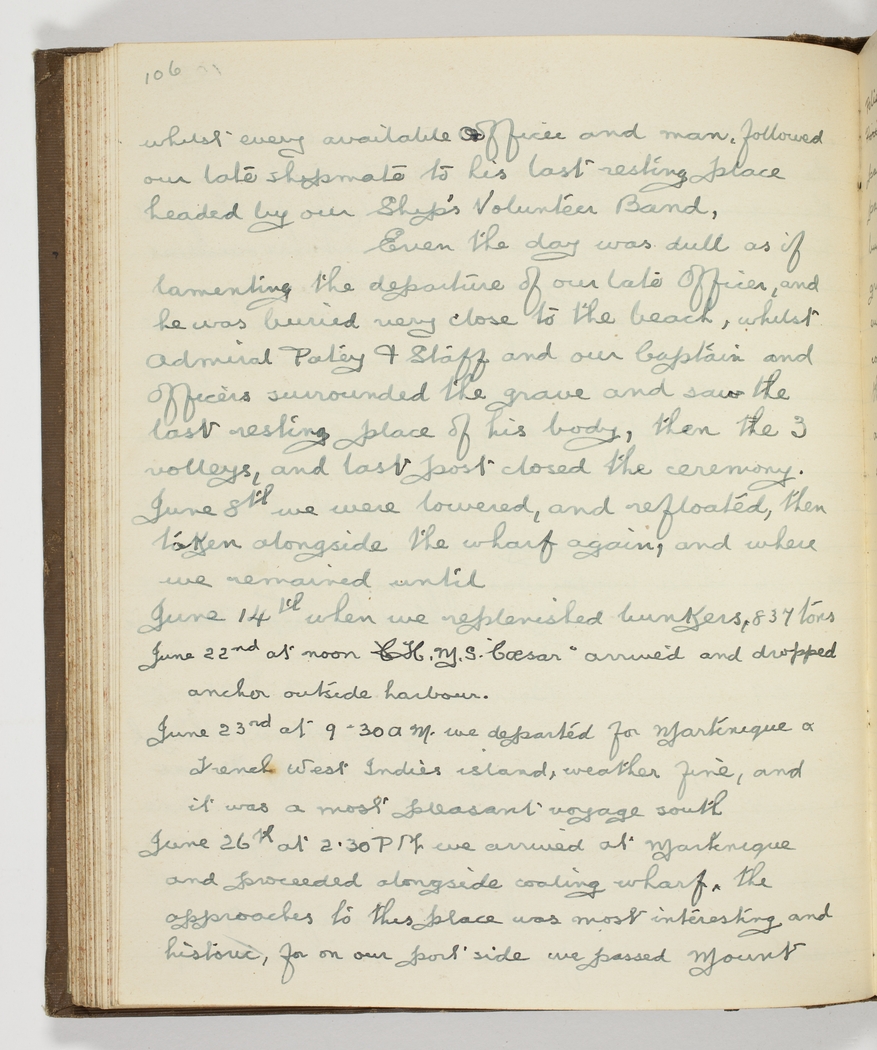 106
whilst every available officer and man, followed
our late shipmate to his last resting place
headed by our Ship's Volunteer Band,
Even the day was dull as if
lamenting the departure of our late Officer, and
he was buried very close to the beach, whilst
Admiral Patey & Staff and our Captain and
Officers surrounded the grave and saw the
last resting place of his body, then the 3
volleys, and last post closed the ceremony.
June 8th we were lowered, and refloated, then
taken alongside the wharf again, and where
we remained until
June 14th when we replenished bunkers, 837 tons
June 22nd at noon H.M.S. "Cæsar" arrived and dropped
anchor outside harbour.
June 23rd at 9-30 a M. we departed for Martinique a
French West Indies island, weather fine, and
it was a most pleasant voyage south
June 26th at 2.30 PM we arrived at Martinique
and proceeded alongside coaling wharf, the
approaches to this place was most interesting and
historic, for on our port side we passed Mount